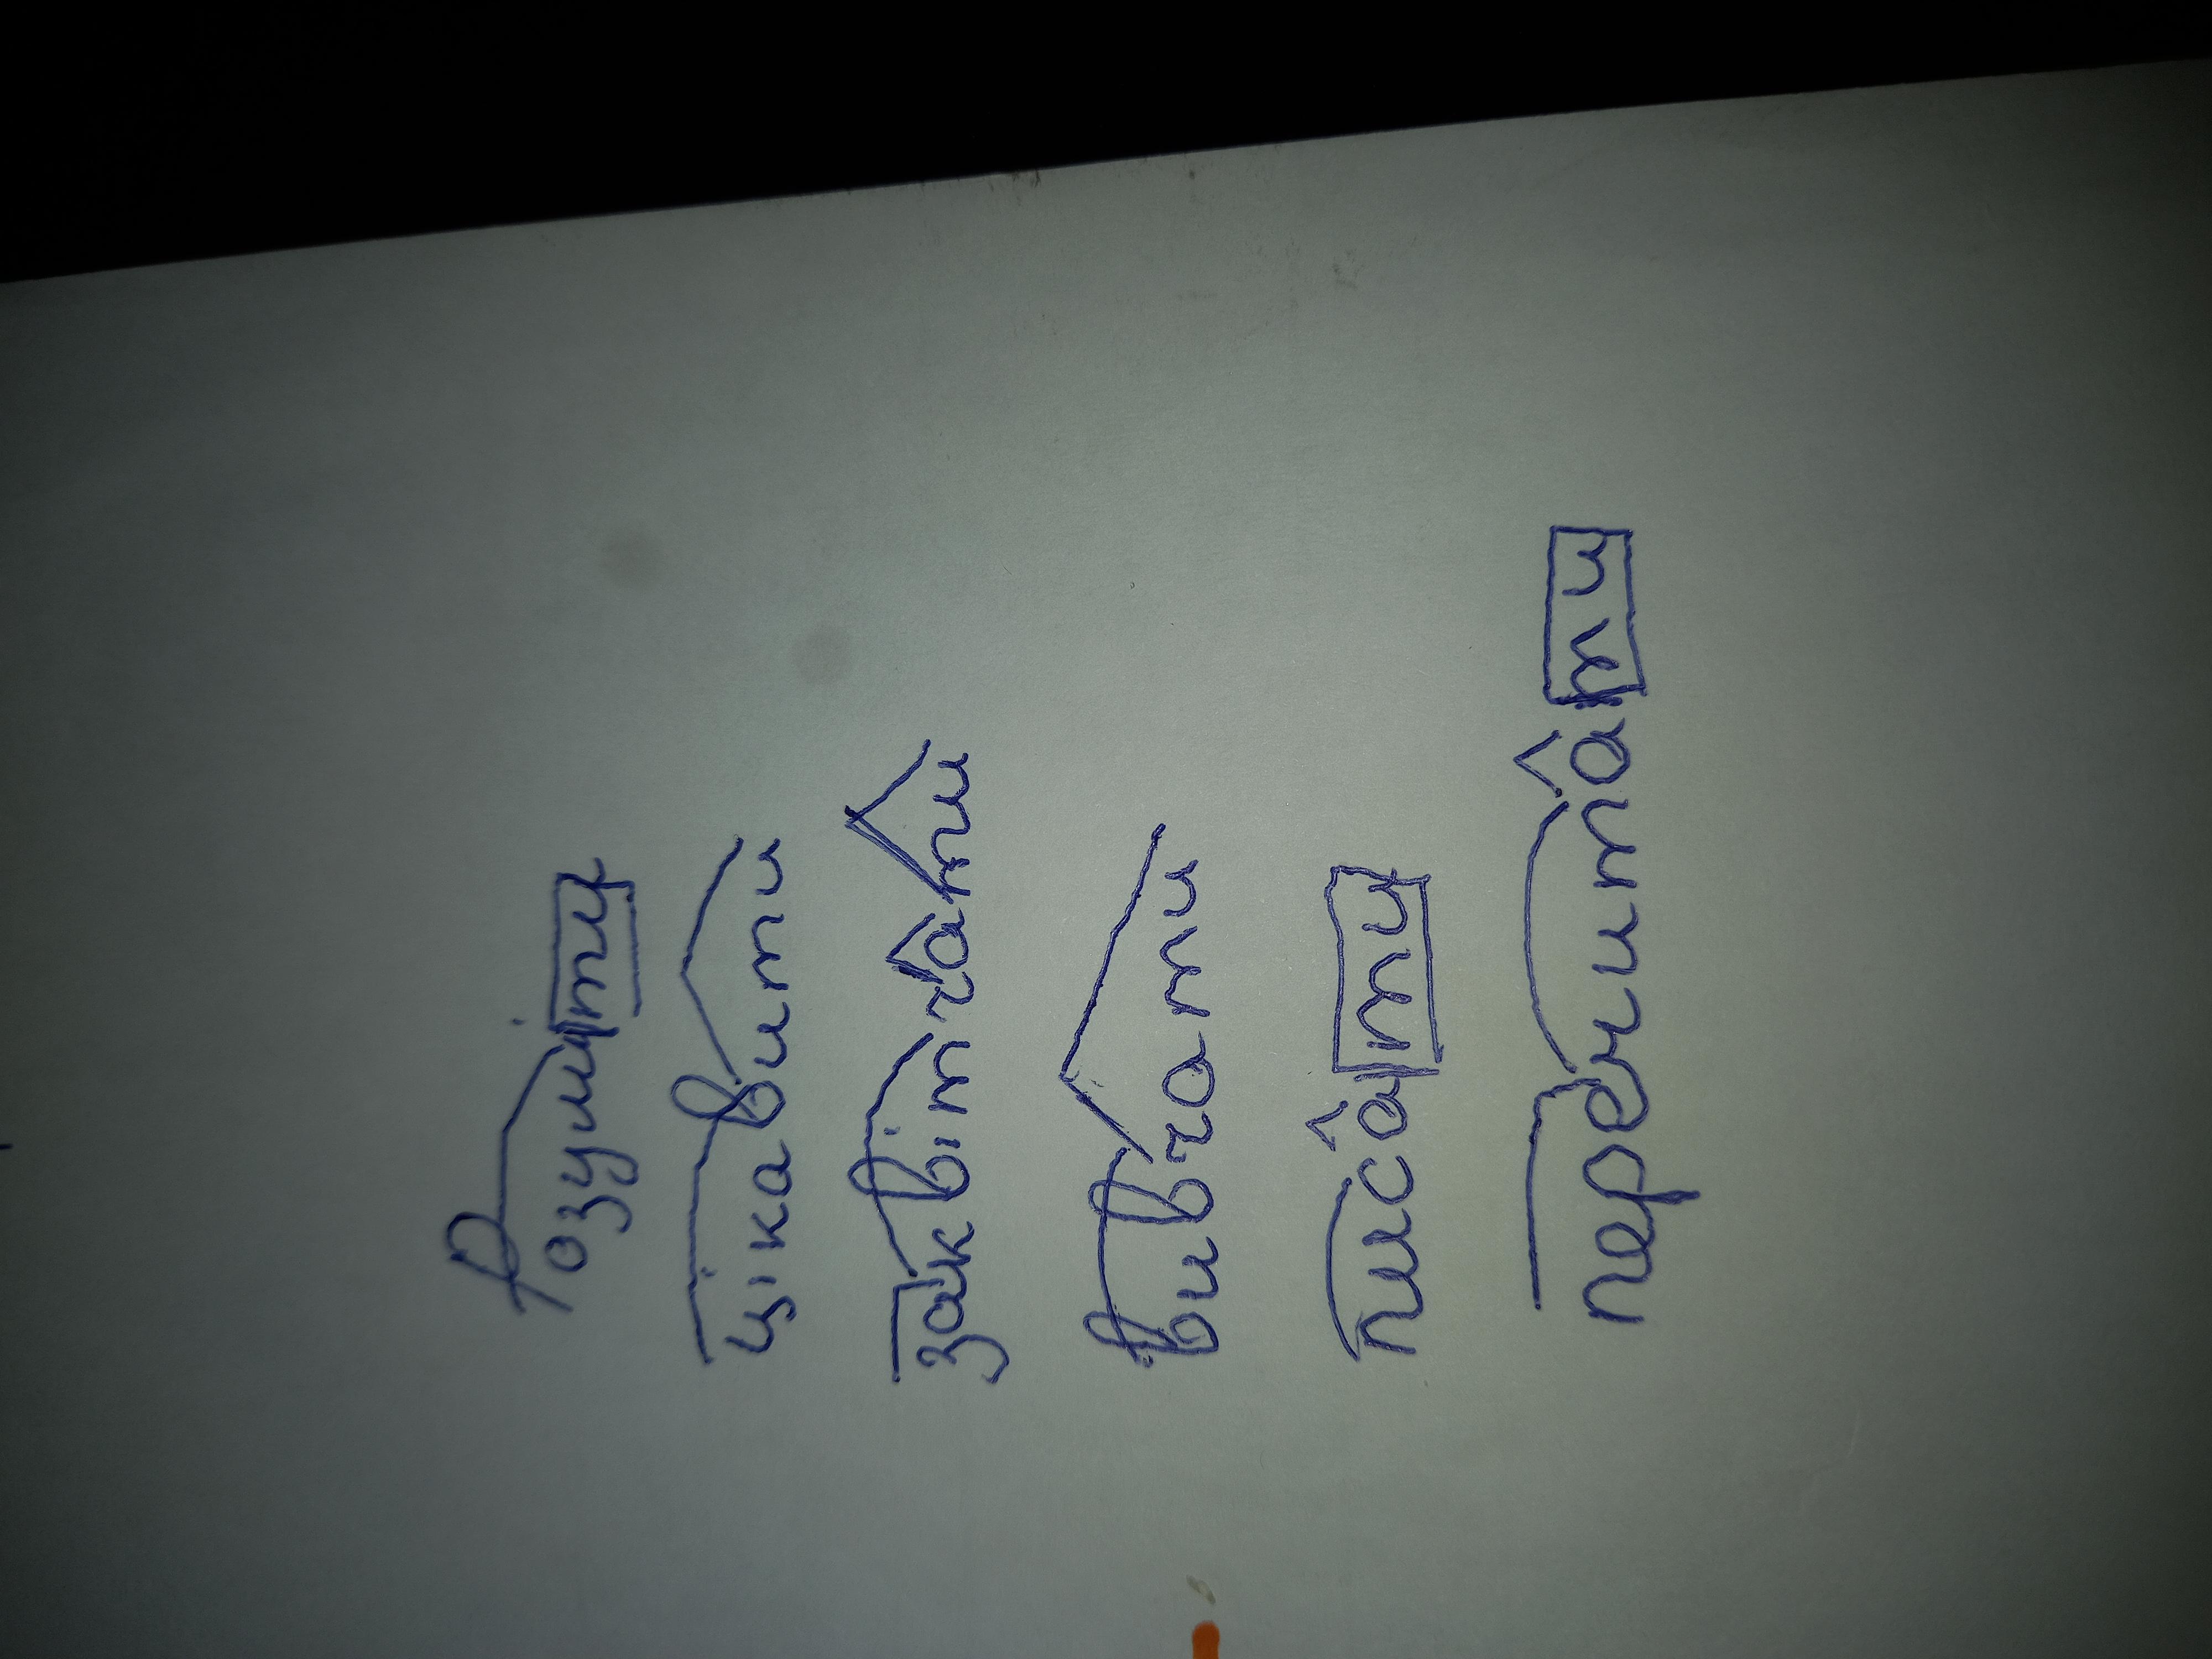 Розуміти
цікавити
заквітчати
вивчати
писати
перечитати